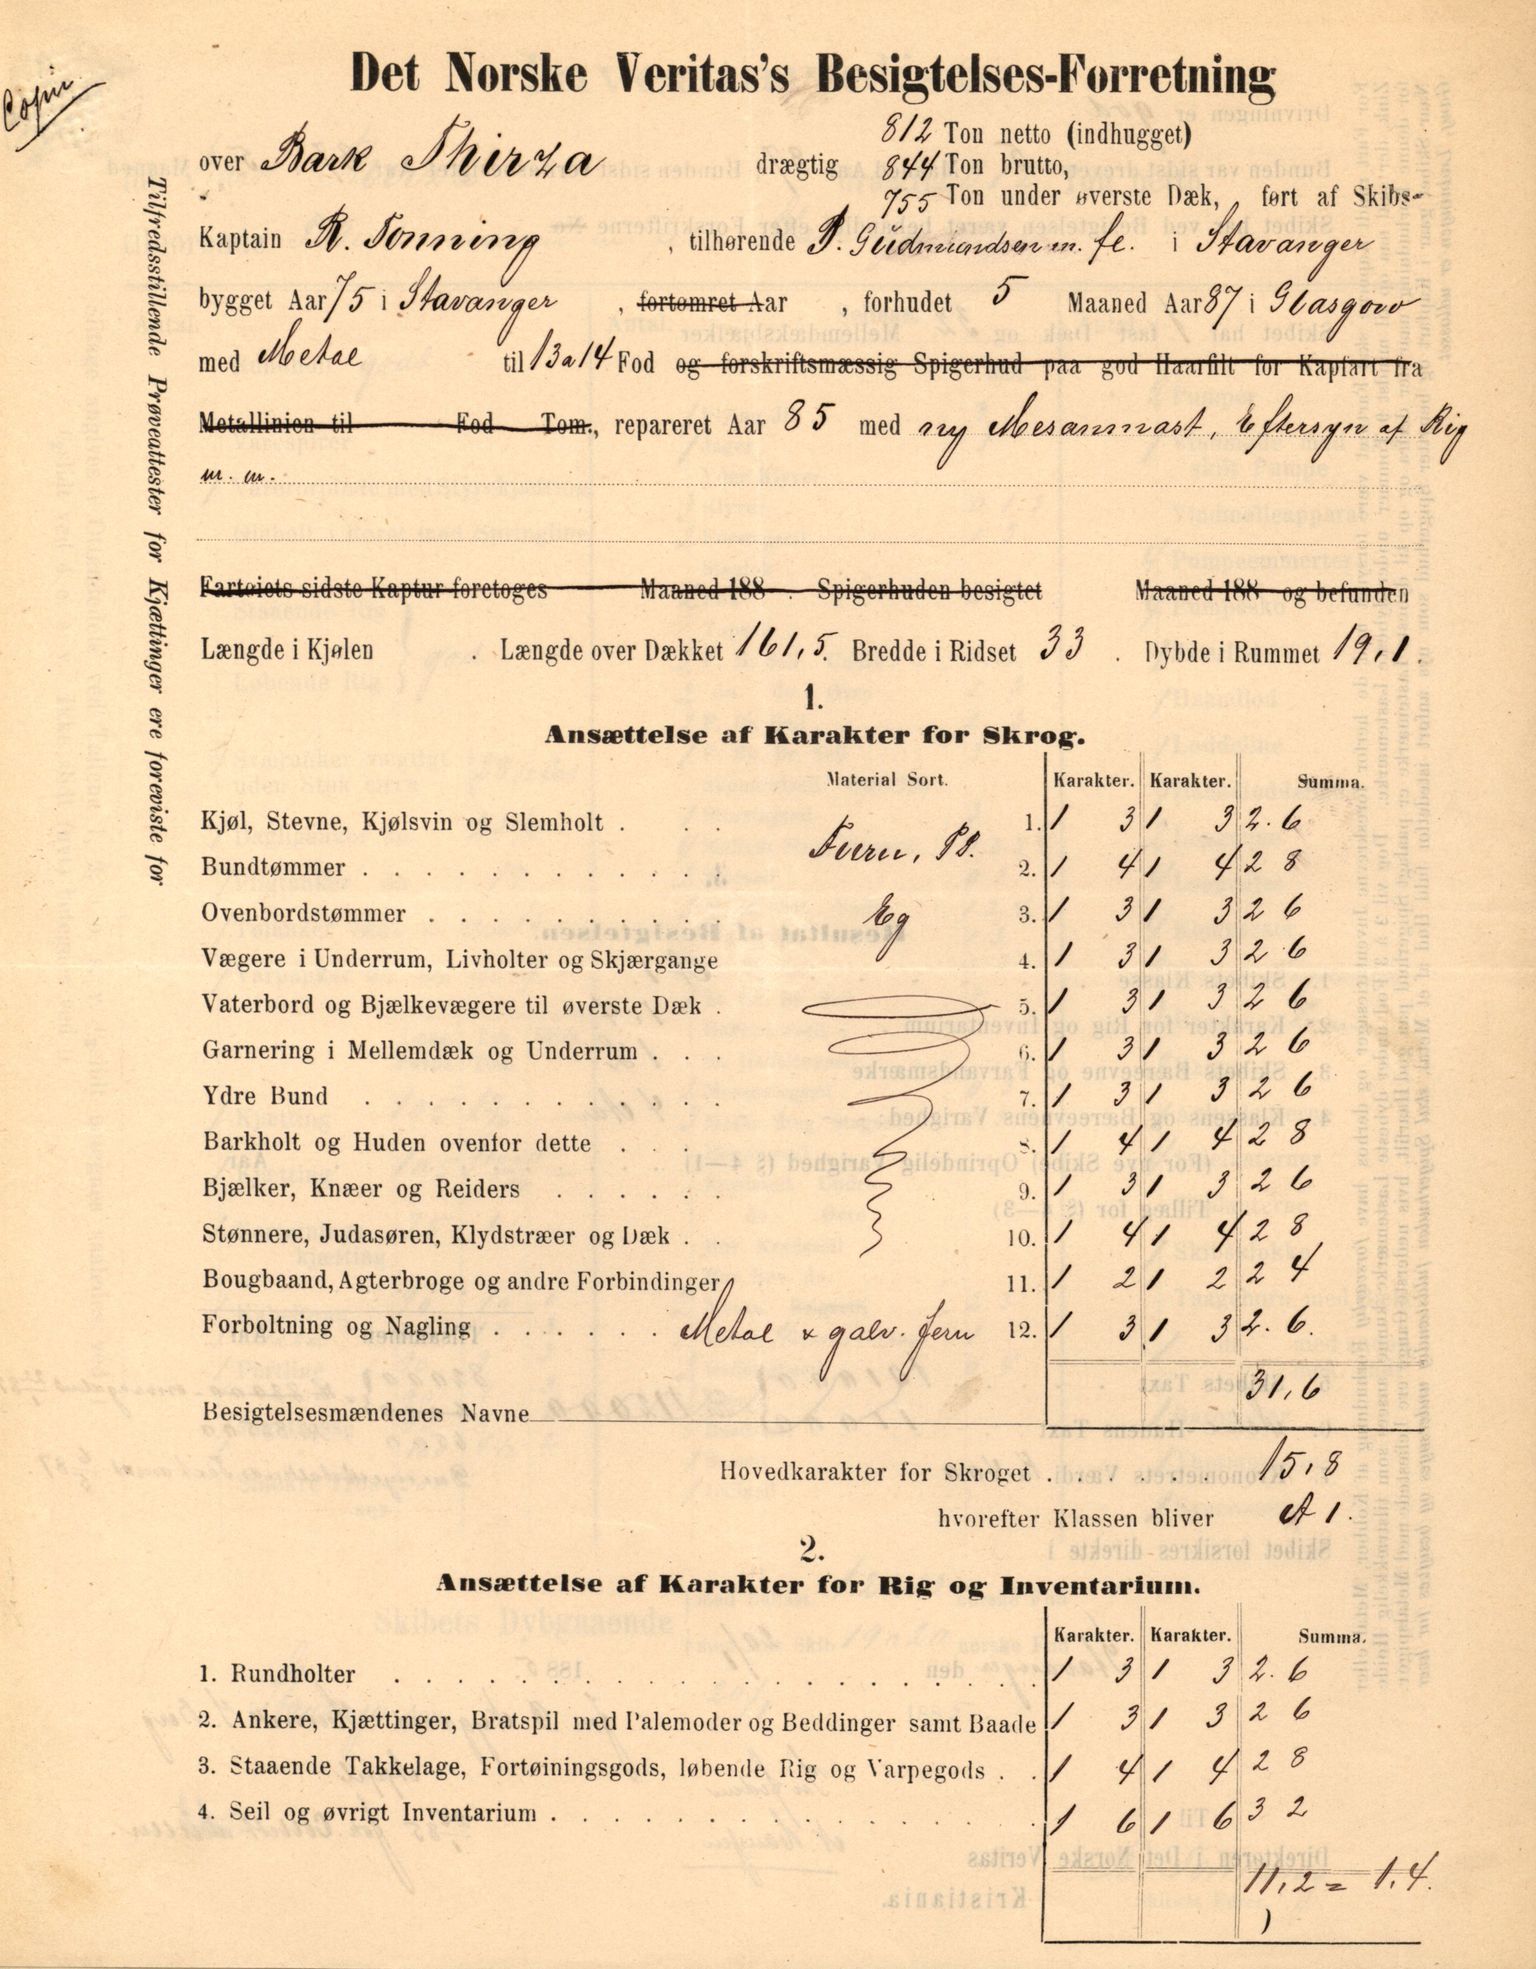 Copie
Det Norske Veritas's Besigtelses-Forretning
812 Ton netto (indhugget)
over Bark Thirza drægtig 844 Ton brutto,
755 Ton under øverste Dæk, ført af Skibs-
Kaptain R. Tonning, tilhørende P. Gudmundsen m. fl. i Stavanger
bygget Aar 75 i Stavanger, fortømret Aar , forhudet 5 Maaned Aar 87 i Glasgow
med Metal til 13 a 14 Fod og forskriftsmæssig Spigerhud paa god Haarfilt for Kapfart fra
Metallinien til Fod Tom., repareret Aar 85 med ny Mesanmast, Eftersyn af Rig
m. m.
Fartøiets sidste Kaptur foretoges Maaned 188 . Spigerhuden besigtet Maaned 188 og befunden
Længde i Kjølen . Længde over Dækket 161,5. Bredde i Ridset 33 . Dybde i Rummet 19,1.
Tilfredsstillende Prøveattester for Kjættinger ere foreviste for
1.
Ansættelse af Karakter for Skrog.
Material Sort. Karakter. Karakter. Summa.
Kjøl, Stevne, Kjølsvin og Slemholt . . . 1. 1 3 1 3 2. 6
Furu, PP.
Bundtømmer . . . . . . . . . . . . 2. 1 4 1 4 2 8
Ovenbordstømmer . . . . . . . . . . Eg 3. 1 3 1 3 2 6
Vægere i Underrum, Livholter og Skjærgange 4. 1 3 1 3 2 6
Vaterbord og Bjælkevægere til øverste Dæk . 5. 1 3 1 3 2 6
Garnering i Mellemdæk og Underrum . . . 6. 1 3 1 3 2 6
Ydre Bund . . . . . . . . . . . . . 7. 1 3 1 3 2 6
Barkholt og Huden ovenfor dette . . . 8. 1 4 1 4 2 8
Bjælker, Knæer og Reiders . . . . . . 9. 1 3 1 3 2 6
Stønnere, Judasøren, Klydstræer og Dæk . . 10. 1 4 1 4 2 8
Bougbaand, Agterbroge og andre Forbindinger 11. 1 2 1 2 2 4
Forboltning og Nagling . . . . . . Metal & galv. jern 12. 1 3 1 3 2. 6.
31,6
Besigtelsesmændenes Navne
Hovedkarakter for Skroget . . . . . . 15,8
hvorefter Klassen bliver A 1.
2.
Ansættelse af Karakter for Rig og Inventarium.
Karakter. Karakter. Summa.
1. Rundholter . . . . . . . . . . . . . . . . . . 1 3 1 3 2. 6
2. Ankere, Kjættinger, Bratspil med Palemoder og Beddinger samt Baade 1 3 1 3 2 6
3. Staaende Takkelage, Fortøiningsgods, løbende Rig og Varpegods . . 1 4 1 4 2 8
4. Seil og øvrigt Inventarium . . . . . . . . . . . . . . 1 6 1 6 3 2
11,2 = 1.4.